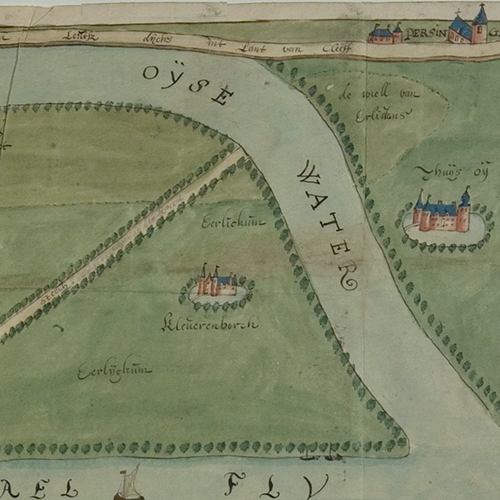 dijck int Lant van Cleeff
PERSIN G
OŸSE
WATER
de well van
Erlickans
Thuÿs oÿ
Eerlickum
Kleuerenborch
Eerlÿckum
AEL FLV